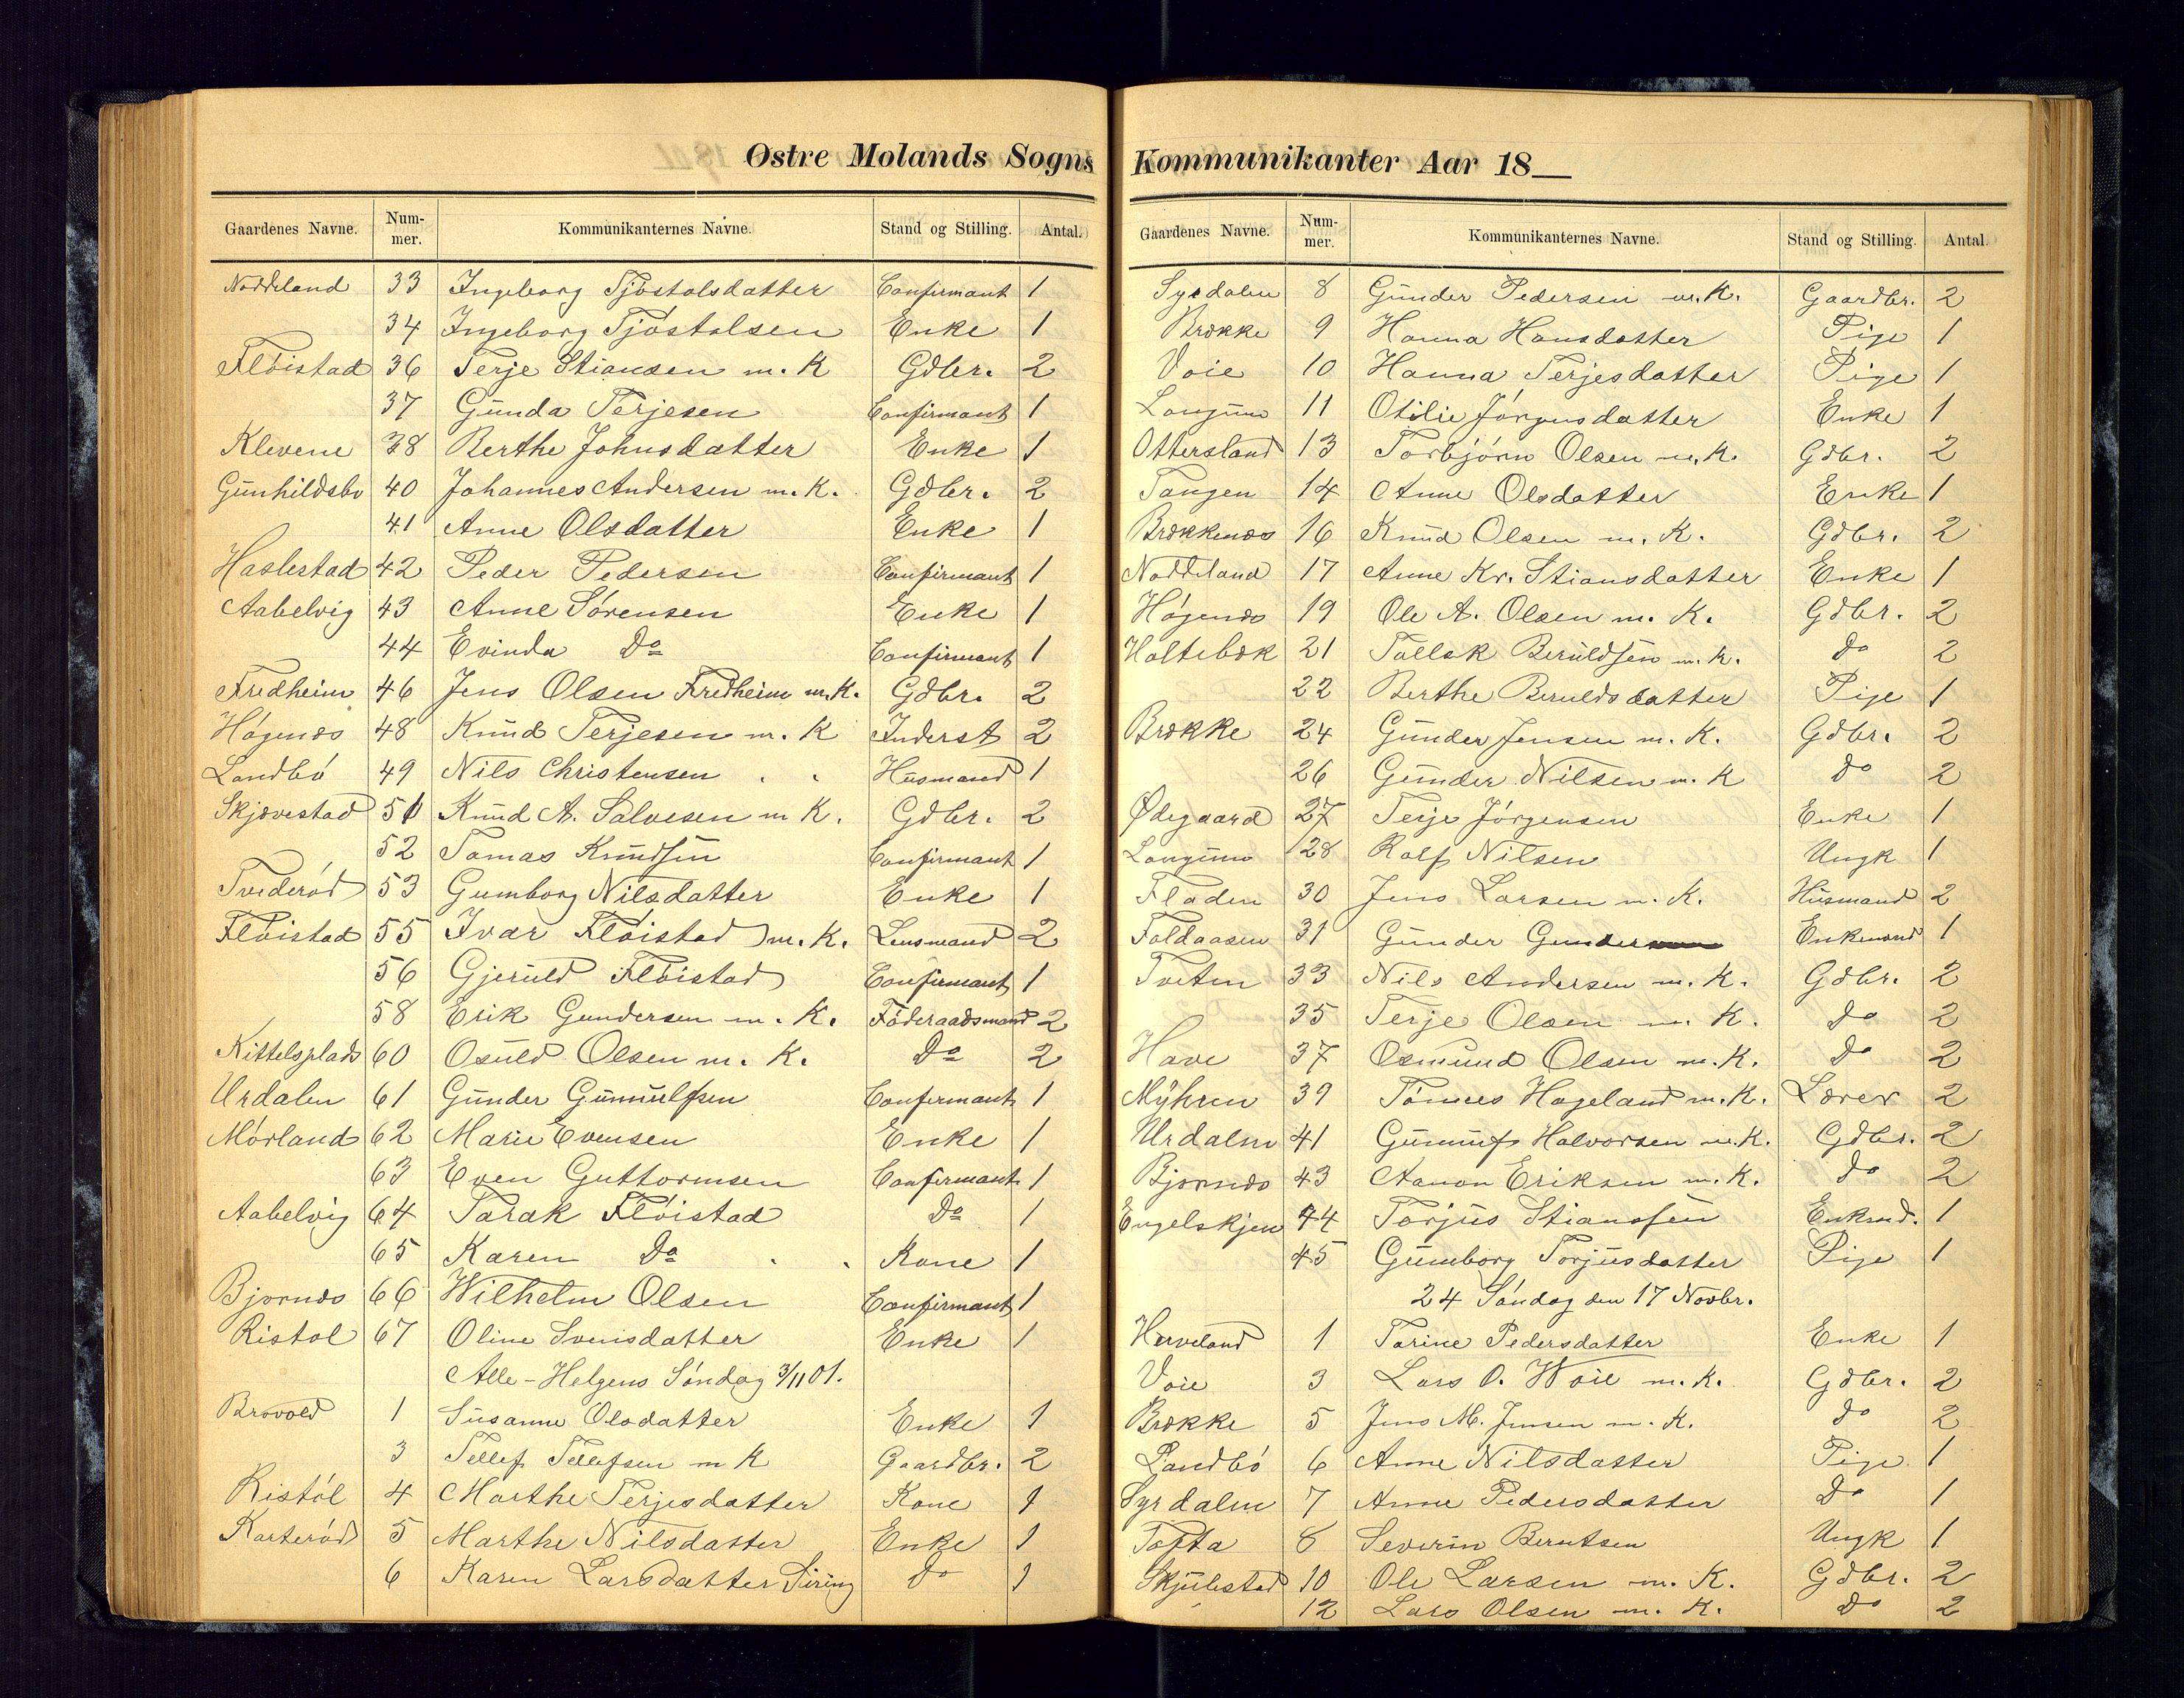 Østre Molands Sogns
Gaardenes Navne. Num-mer. Kommunikanternes Navne. Stand og Stilling. Antal.
Noddeland 33 Ingeborg Tjøstolsdatter Confirmant 1
34 Ingeborg Tjøstolsen Enke 1
Fløistad 36 Terje Stiansen m. K Gdbr. 2
37 Gunda Terjesen Confirmant 1
Klevene 38 Berthe Johnsdatter Enke 1
Gunhildsbo 40 Johannes Andersen m. K. Gdbr. 2
41 Anne Olsdatter Enke 1
Haslestad 42 Peder Pedersen Confirmant 1
Aabelvig 43 Anne Sørensen Enke 1
44 Evinda Do Confirmant 1
Fredheim 46 Jens Olsen Fredheim m. K. Gdbr. 2
Høgenæs 48 Knud Terjesen m. K Inderst 2
Landbø 49 Nils Christensen Husmand 1
Skjævestad 51 Knud A. Salvesen m K. Gdbr. 2
52 Tomas Knudsen Confirmant 1
Tvederød 53 Gumborg Nilsdatter Enke 1
Fløistad 55 Ivar Fløistad m. K. Lensmand 2
56 Gjeruld Fløistad Confirmant 1
58 Erik Gundersen m. K. Føderaadsmand 2
Kittelsplads 60 Osuld Olsen m. K. Do 2
Urdalen 61 Gunder Gunnulfsen Confermant 1
Mørland 62 Marie Evensen Enke 1
63 Even Guttormsen Confermant 1
Aabelvig 64 Tarak Fløistad Do 1
65 Karen Do Kone 1
Bjørnæs 66 Wilhelm Olsen Confirmant 1
Ristøl 67 Oline Svensdatter Enke 1
Alle-Helgens Søndag 3/11 01.
Brovold 1 Susanne Olsdatter Enke 1
3 Tellef Tellefsen m K Gaardbr. 2
Ristøl 4 Marthe Terjesdatter Kone 1
Karterød 5 Marthe Nilsdatter Enke 1
6 Karen Larsdatter Do 1
Kommunikanter Aar 18
Gaardenes Navne. Num-mer. Kommunikanternes Navne. Stand og Stilling. Antal.
Syrdalen 8 Gunder Pedersen m. K. Gaardbr. 2
Brække 9 Hanna Hansdatter Pige 1
Voie 10 Hanna Terjesdatter Pige 1
Longum 11 Otilie Jørgensdatter Enke 1
Ottersland 13 Torbjørn Olsen m. K. Gdbr. 2
Tangen 14 Anne Olsdatter Enke 1
Brækkenæs 16 Knud Olsen m. K. Gdbr. 2
Noddeland 17 Anne Kr. Stiansdatter Enke 1
Høgenæs 19 Ole A. Olsen m. K. Gdbr. 2
Holtebæk 21 Tallak Beruldsen m. K. do 2
22 Berthe Beruldsdatter Pige 1
Brække 24 Gunder Jensen m. K. Gdbr. 2
26 Gunder Nilsen m. K do 2
Ødegaard 27 Terje Jørgensen Enke 1
Longum 28 Rolf Nilsen Ungk 1
Fladen 30 Jens Larsen m. K. Husmand 2
Foldaasen 31 Gunder Gunder Enkemand 1
Tveten 33 Nils Andersen m. K. Gdbr. 2
35 Terje Olsen m. K. do 2
Have 37 Osmund Olsen m. K. do 2
Myhren 39 Tønnes Hageland m. K. Lærer 2
Urdalen 41 Gunnuf Halvorsen m. K. Gdbr. 2
Bjørnæs 43 Aanon Eriksen m. K. do 2
Engelskjen 44 Torjus Stiansen Enkmd. 1
45 Gumborg Torjusdatter Pige 1
24 Søndag den 17 Novbr.
Herveland 1 Tarine Pedersdatter Enke 1
Voie 3 Lars O. Woie m. K. Gdbr. 2
Brække 5 Jens M. Jensen m. K. do 2
Landbø 6 Anne Nilsdatter Pige 1
Syrdalen 7 Anne Pedersdatter do 1
Tofta 8 Severin Berntsen Ungk 1
Skjulestad 10 Ole Larsen m. K. Gdbr. 2
12 Lars Olsen m. K. do 2